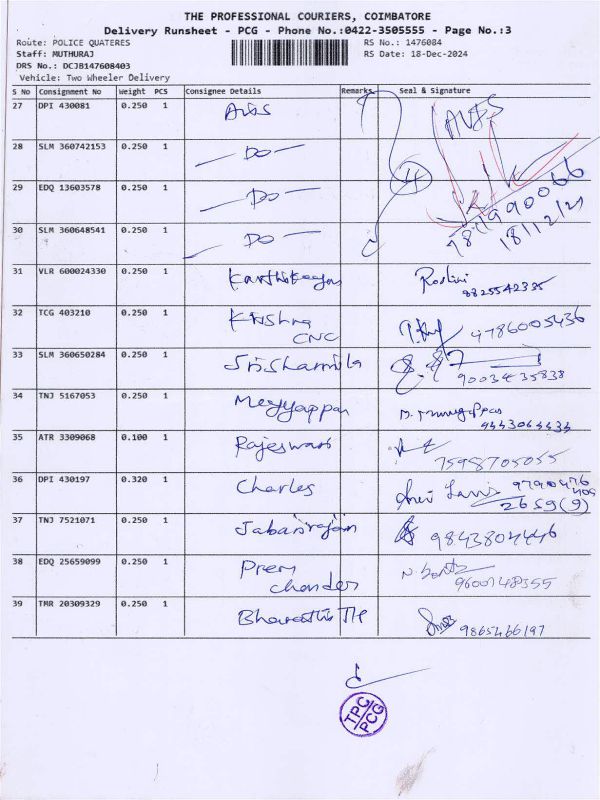 THE PROFESSIONAL COURIERS, COIMBATORE
Delivery Runsheet - PCG - Phone No.:0422-3505555 - Page No.:3
Route: POLICE QUATERES RS No.: 1476084
Staff: MUTHURAJ RS Date: 18-Dec-2024
DRS No.: DCJB147608403
Vehicle: Two Wheeler Delivery
S No Consignment No Weight PCS Consignee Details Remarks Seal & Signature
27 DPI 430081 0.250 1
28 SLM 360742153 0.250 1 — Do —
29 EDQ 13603578 0.250 1 — Do —
30 SLM 360648541 0.250 1 — Do —
18/12/24
31 VLR 600024330 0.250 1 Roslini
32 TCG 403210 0.250 1 Krishna
CNC 4786005436
33 SLM 360650284 0.250 1 Sri.Sharmila
9003435838
34 TNJ 5167053 0.250 1 Meyyappan
35 ATR 3309068 0.100 1 Rajeswari
7598705055
36 DPI 430197 0.320 1 Charles
2659(9)
37 TNJ 7521071 0.250 1 9843804446
38 EDQ 25659099 0.250 1 Prem
chander 9600148355
39 TMR 20309329 0.250 1 9865466197
TPC
PCG